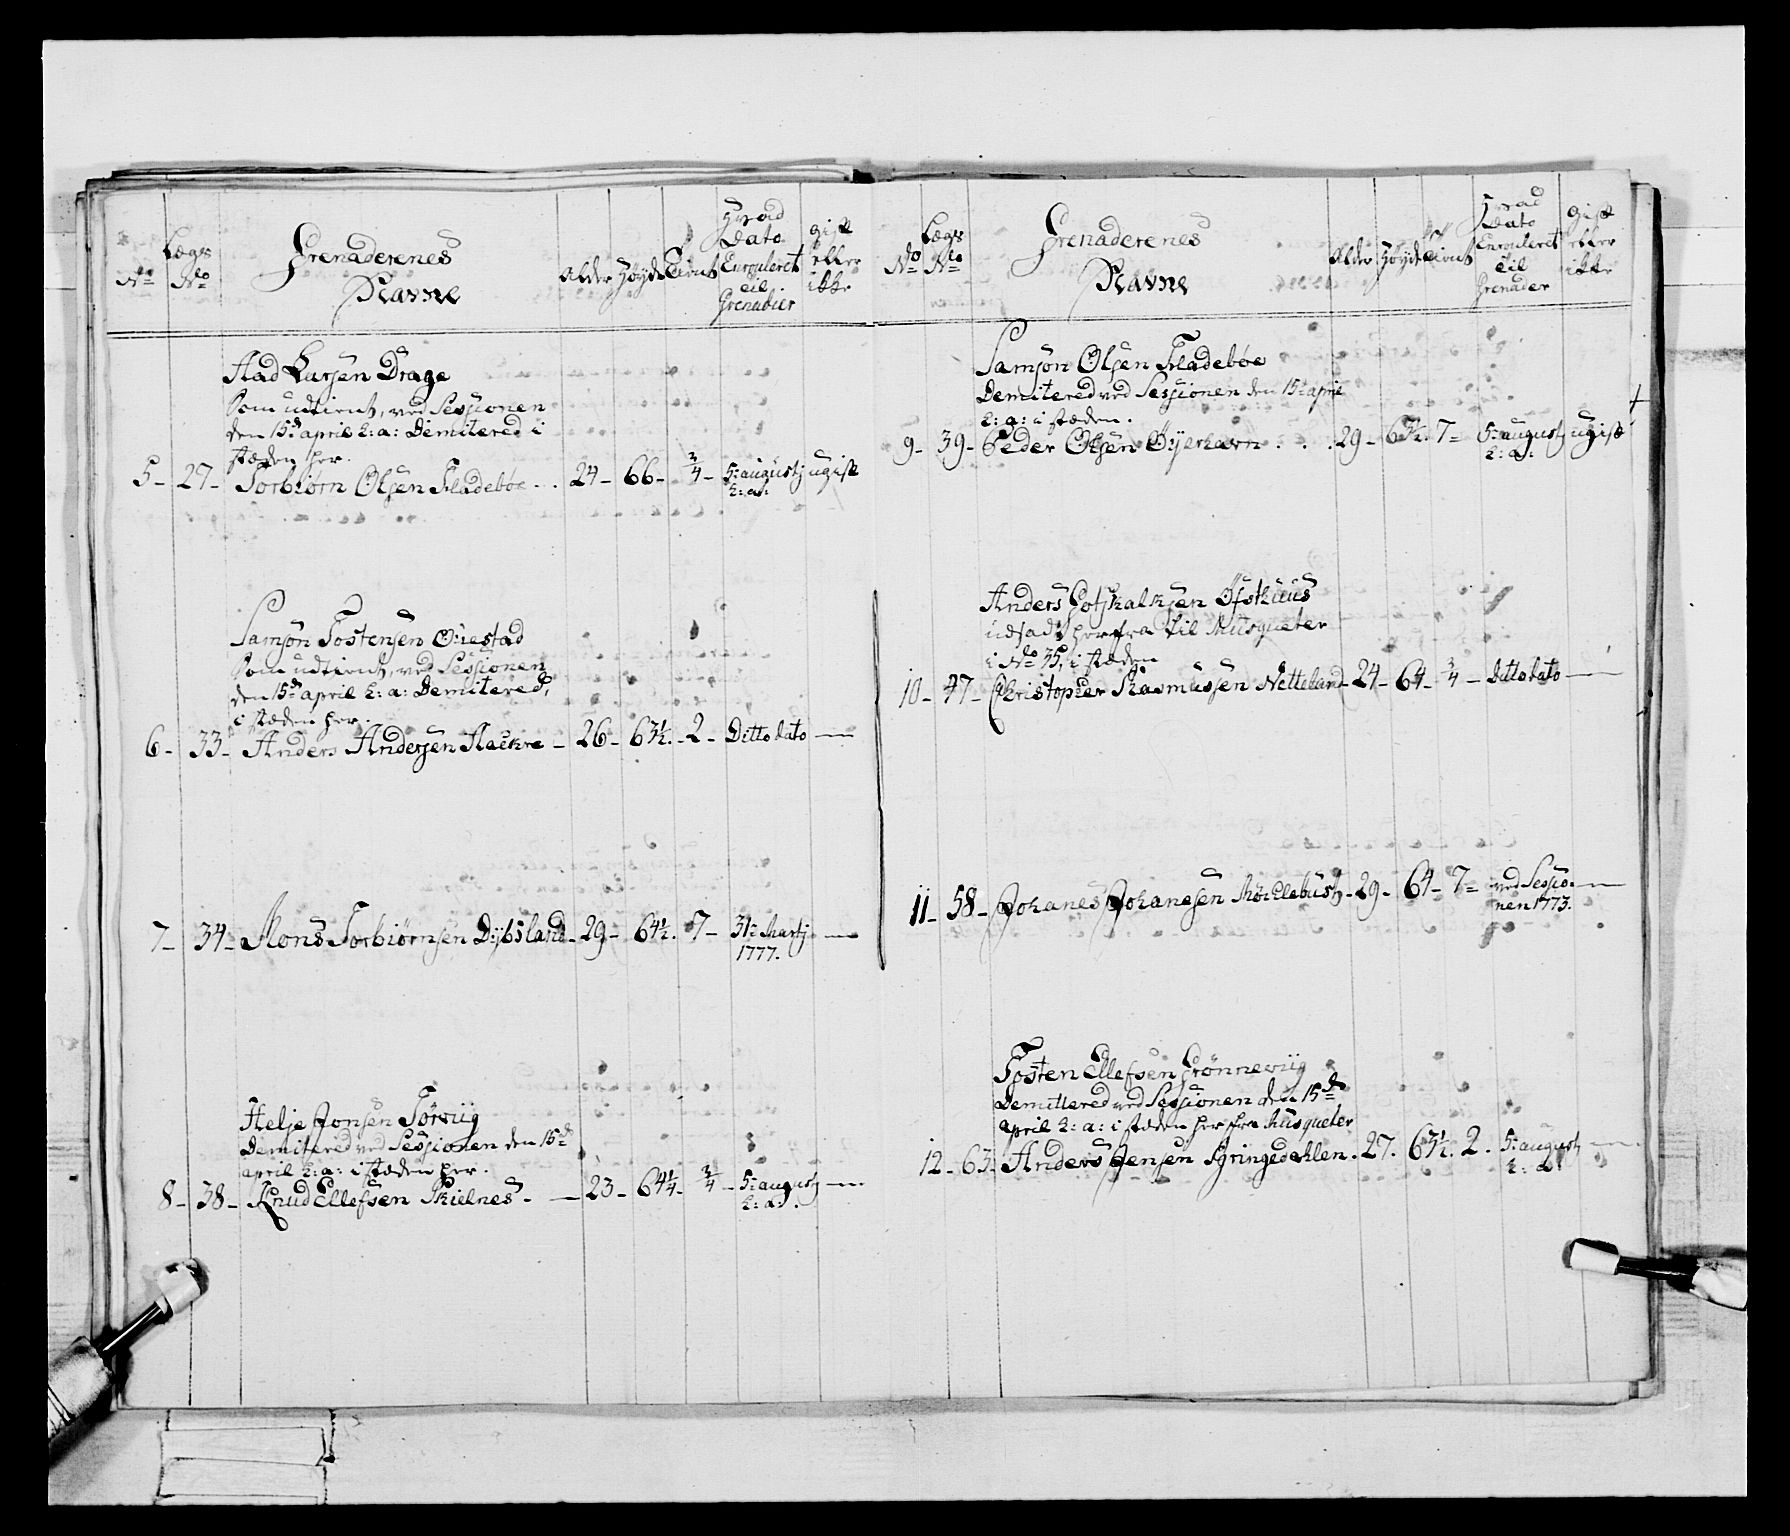 No Lægs No Grenaderenes Navne Alder Høyde Tient Hvad Dato Enrouleret til Grenadeer gift eller ikke
Aad Larsen Drage
Som udtient, ved Sessionen
den 15de april h: a: Demitered i
stæden her.
5 - 27 - Torbiørn Olsen Fladebøe - . 24 - 66 - 3/4 - 5: augustj ugift
h: a:
Samson Tostensen
Som udtient, ved Sessionen
den 15de april h: a: Demitered,
i stæden her.
6 - 33 - Anders Andersen - 26 - 63½. - 2 - Ditto dato —
7 - 34 - Mons Torbiørnsen Dybsland - 29 - 64½. 7 - 31: Martj —
1777.
Helje Jonsen Torviig
Demitered ved Sessionen den 15de
april h: a: i stæden her.
8 - 38 - Knud Ellefsen Skielnes - — 23 - 64¼ - 3/4 - 5: augustj —
h: a: .
No Lægs No Grenaderenes Navne Alder Høyde Tient Hvad Dato Enrouleret til Grenader gift eller ikke
Samson Olsen Fladebøe
Demitered ved Sessionen den 15: april
h: a: i stæden.
9 - 39 - Peder Olsen Øyerhavn . . . 29 - 63½. 7 = 5: augustj ugift
h: a:
Anders Gotskalksen Øfsthuus
udsadt herfra til Musqueter
i No 35, i stæden
10 - 47 - Christopher Rasmussen Netteland - 24 - 64 - 3/4 - Ditto dato —
11 - 58 - Johanes Johanesen - 29 - 64 - 7 = ved Sessio- —
nen 1773.
Tosten Ellefsen Grønneviig
Demittered ved Sessionen den 15de
april h: a: i stæden her fra Musqueter
12 - 63 - Anders Jensen . 27. 63½. 2. 5: augustj —
h: a: